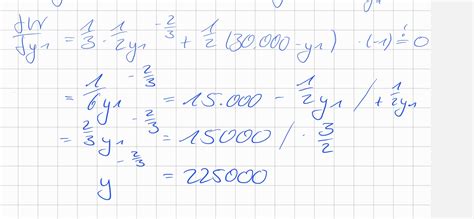 dW/dy₁ = 1/3 · 1/2 y₁^(-2/3) + 1/2 (30.000 - y₁) · (-1) =! 0
= 1/6 y₁^(-2/3) = 15.000 - 1/2 y₁ / + 1/2 y₁
= 2/3 y₁^(-2/3) = 15000 / · 3/2
y^(-2/3) = 225000